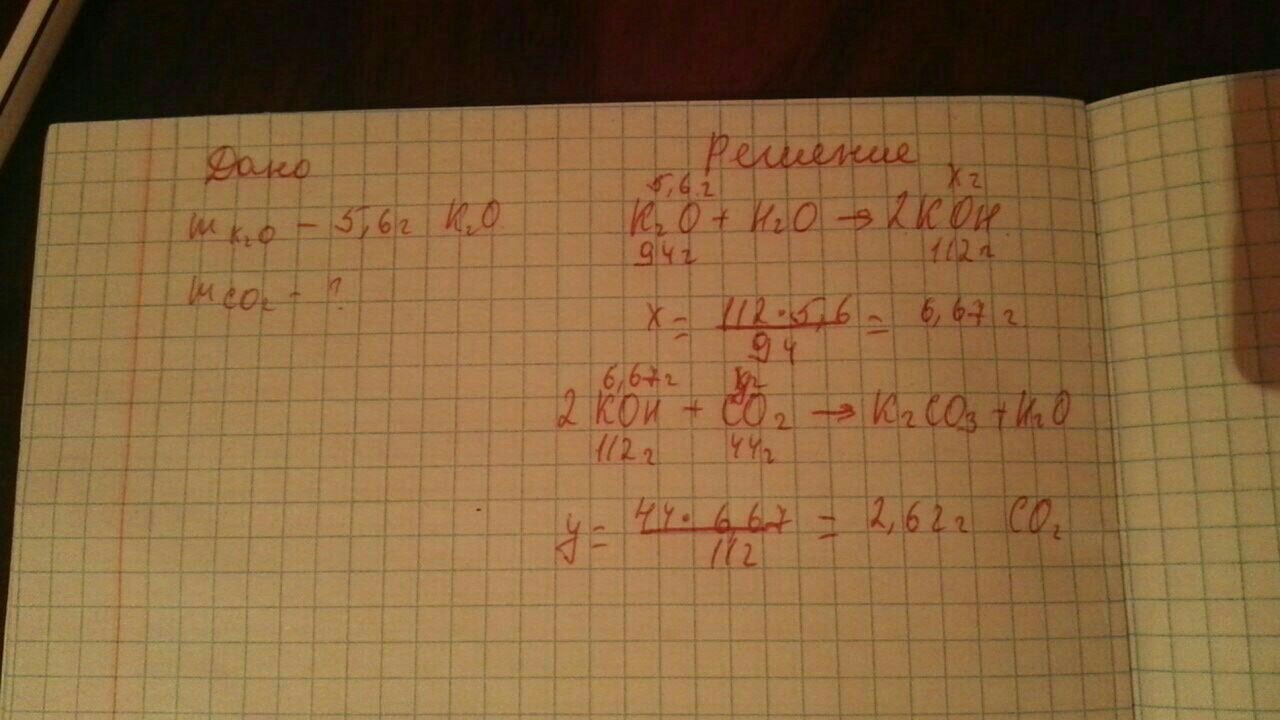 Дано
m K₂O – 5,6г K₂O
m CO₂ – ?
Решение
5,6г xг
K₂O + H₂O → 2KOH
94г 112г
x = 112·5,6 / 94 = 6,67г
6,67г yг
2KOH + CO₂ → K₂CO₃ + H₂O
112г 44г
y = 44·6,67 / 112 = 2,62г CO₂